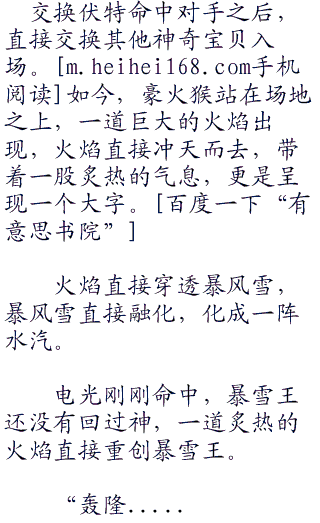 交换伏特命中对手之后，
直接交换其他神奇宝贝入
场。[m.heihei168.com手机
阅读]如今，豪火猴站在场地
之上，一道巨大的火焰出
现，火焰直接冲天而去，带
着一股炙热的气息，更是呈
现一个大字。[百度一下“有
意思书院”]
火焰直接穿透暴风雪，
暴风雪直接融化，化成一阵
水汽。
电光刚刚命中，暴雪王
还没有回过神，一道炙热的
火焰直接重创暴雪王。
“轰隆.....